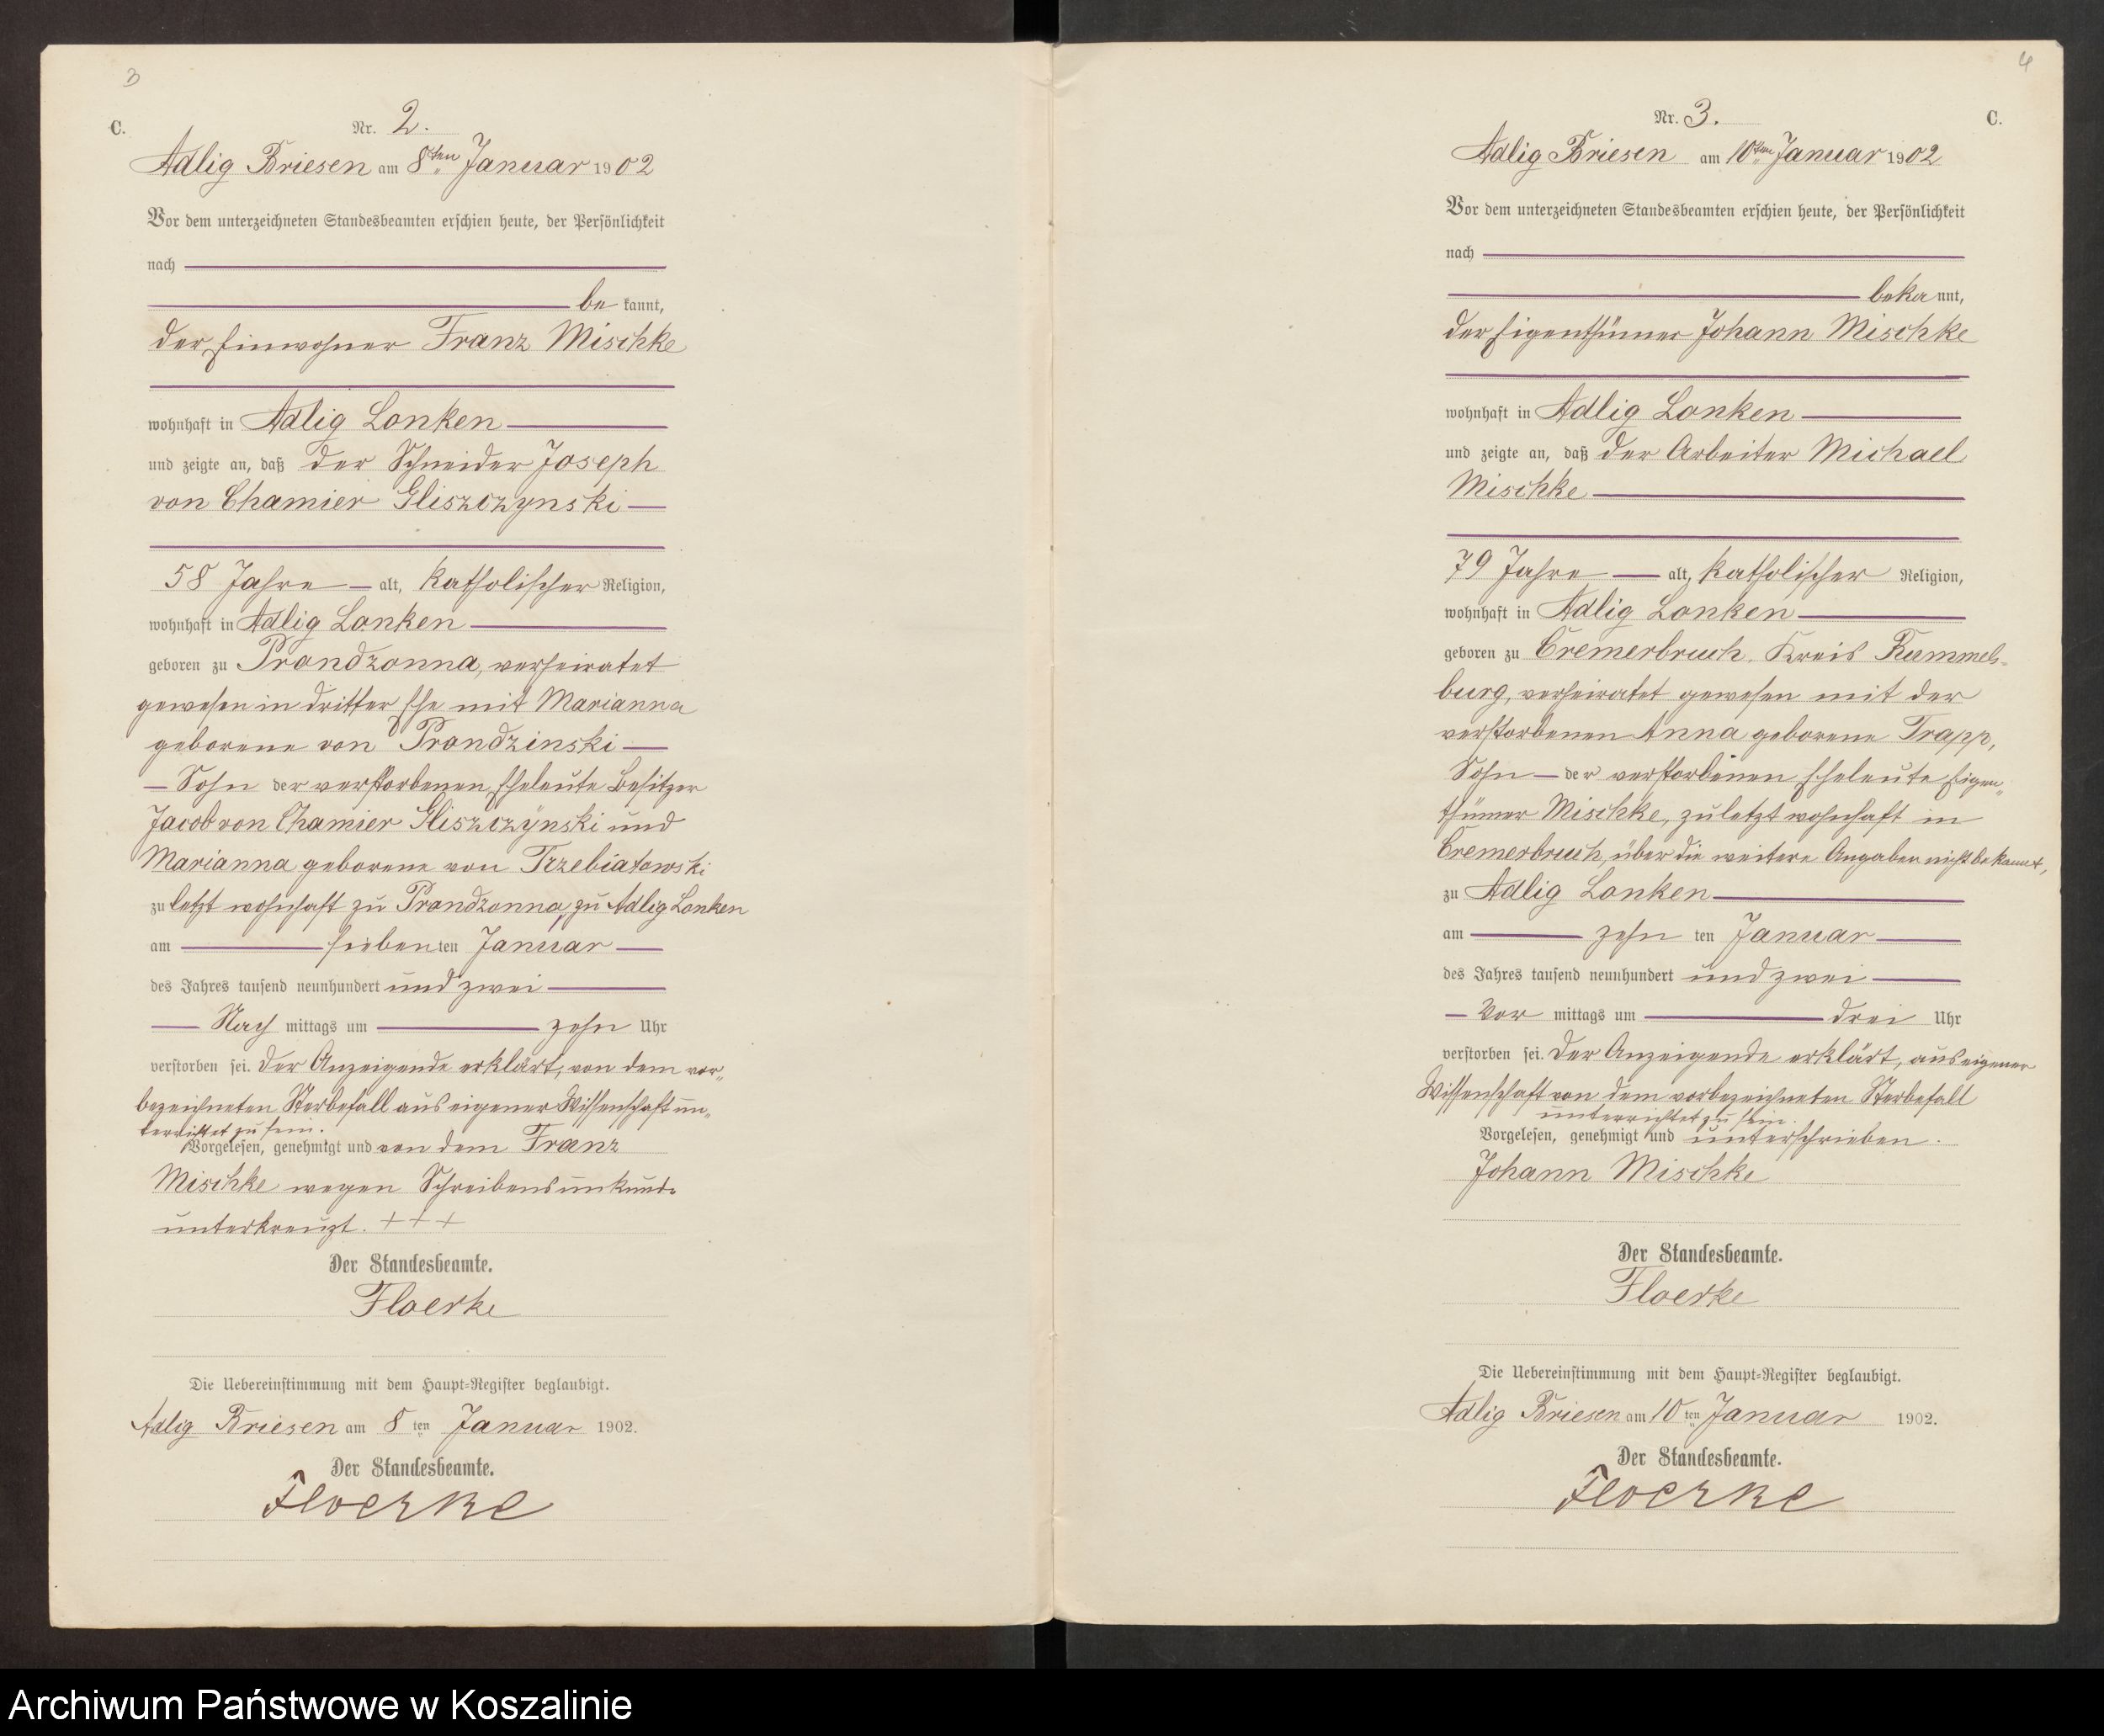 3
C.
Nr. 2.
Adlig Briesen am 8ten Januar 1902
Vor dem unterzeichneten Standesbeamten erschien heute, der Persönlichkeit
nach
be kannt,
der Einwohner Franz Mischke
wohnhaft in Adlig Lonken
und zeigte an, daß der Schneider Joseph
von Chamier Gliszczynski
58 Jahre alt, katholischer Religion,
wohnhaft in Adlig Lonken
geboren zu Prondzonna, verheiratet
gewesen in dritter Ehe mit Marianna
geborene von Prondzinski
Sohn der verstorbenen Eheleute Besitzer
Jacob von Chamier Gliszczynski und
Marianna geborene von Trzebiatowski
zu letzt wohnhaft zu Prondzonna, zu Adlig Lonken
am siebenten Januar
des Jahres tausend neunhundert und zwei
Nach mittags um zehn Uhr
verstorben sei. Der Anzeigende erklärt, von dem vor-
bezeichneten Sterbefall aus eigener Wissenschaft un-
terrichtet zu sein.
Vorgelesen, genehmigt und von dem Franz
Mischke wegen Schreibensunkunde
unterkreuzt. + + +
Der Standesbeamte.
Floerke
Die Uebereinstimmung mit dem Haupt-Register beglaubigt.
Adlig Briesen am 8 ten Januar 1902.
Der Standesbeamte.
Floerke
4
Nr. 3.
C.
Adlig Briesen am 10ten Januar 1902
Vor dem unterzeichneten Standesbeamten erschien heute, der Persönlichkeit
nach
bekannt,
der Eigenthümer Johann Mischke
wohnhaft in Adlig Lonken
und zeigte an, daß der Arbeiter Michael
Mischke
79 Jahre alt, katholischer Religion,
wohnhaft in Adlig Lonken
geboren zu Cremerbruch, Kreis Rummels-
burg, verheiratet gewesen mit der
verstorbenen Anna geborene Trapp,
Sohn der verstorbenen Eheleute Eigen-
thümer Mischke, zuletzt wohnhaft in
Cremerbruch, über die weitere Angaben nicht bekannt,
zu Adlig Lonken
am zehn ten Januar
des Jahres tausend neunhundert und zwei
Vor mittags um drei Uhr
verstorben sei. Der Anzeigende erklärt, aus eigener
Wissenschaft von dem vorbezeichneten Sterbefall
unterrichtet zu sein.
Vorgelesen, genehmigt und unterschrieben.
Johann Mischke
Der Standesbeamte.
Floerke
Die Uebereinstimmung mit dem Haupt-Register beglaubigt.
Adlig Briesen am 10 ten Januar 1902.
Der Standesbeamte.
Floerke
Archiwum Państwowe w Koszalinie